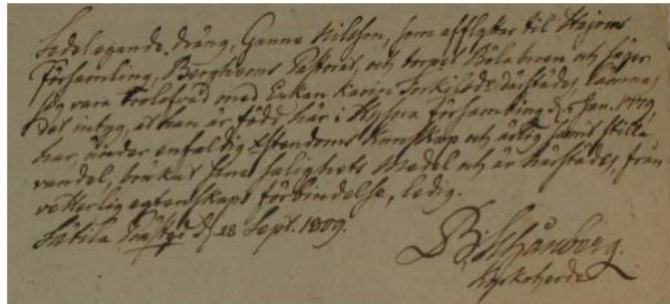 Sedolagande Dräng, Gunne Nilsson, som afflyttar til Hajoms
Församling, Berghems Pastorat, och torpet Bölabron och säger
sig vara trolofvad med Enkan Karin Torkilsdr därstädes, lämnas
det intyg, at han är född här i Hyssna Församling d. 5 Jan. 1779,
har, under enfaldig Christendoms Kunskap och ärlig samt stilla
vandel, brukat sine salighets Medel och är härstädes, från
vetterlig egtenskaps förbindelse, ledig.
Sätila Prästgd d. 28 Sept. 1809.
B. Schånberg.
Kyrkoherde